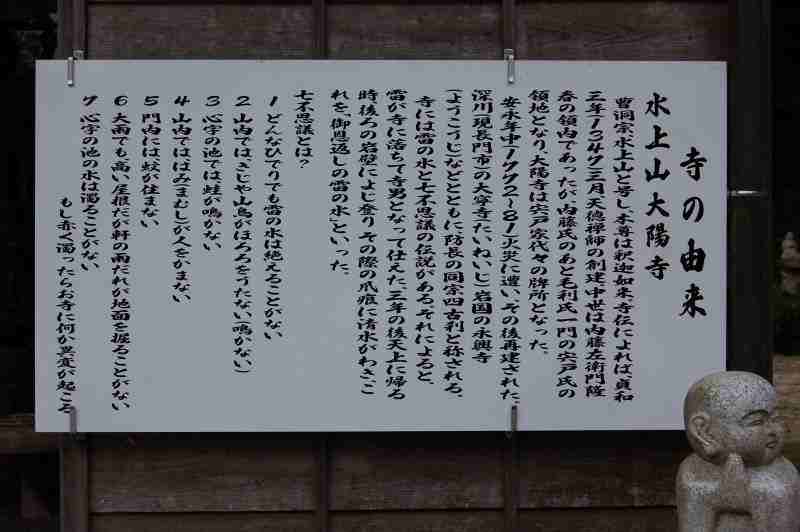 寺の由来
水上山大陽寺
曹洞宗、水上山と号し、本尊は釈迦如来、寺伝によれば、貞和
三年(1347)三月、天徳禅師の創建、中世は内藤左衛門隆
春の領内であったが、内藤氏のあと毛利氏一門の宍戸氏の
領地となり、大陽寺は宍戸家代々の牌所となった。
安永年中(1772〜81)火災に遭い、その後再建された。
深川(現長門市)の大寧寺(たいねいじ)岩国の永興寺
(ようこうじ)などとともに、防長の同宗四古刹と称される。
寺には雷の水と七不思議の伝説がある。それによると、
雷が寺に落ちて寺男となって仕えた。三年の後天上に帰る
時後ろの岩壁によじ登り、その際の爪痕に清水がわき、こ
れを、「御恩返しの雷の水」といった。
七不思議とは?
1 どんなひでりでも雷の水は絶えることがない
2 山内では、きじや山鳥がほろろをうたない(鳴かない)
3 心字の池では蛙が鳴かない
4 山内でははみ(まむし)が人をかまない
5 門内には、蚊が住まない
6 大雨でも、高い屋根だが軒の雨だれが地面を掘ることがない
7 心字の池の水は濁ることがない
もし赤く濁ったらお寺に何か異変が起こる